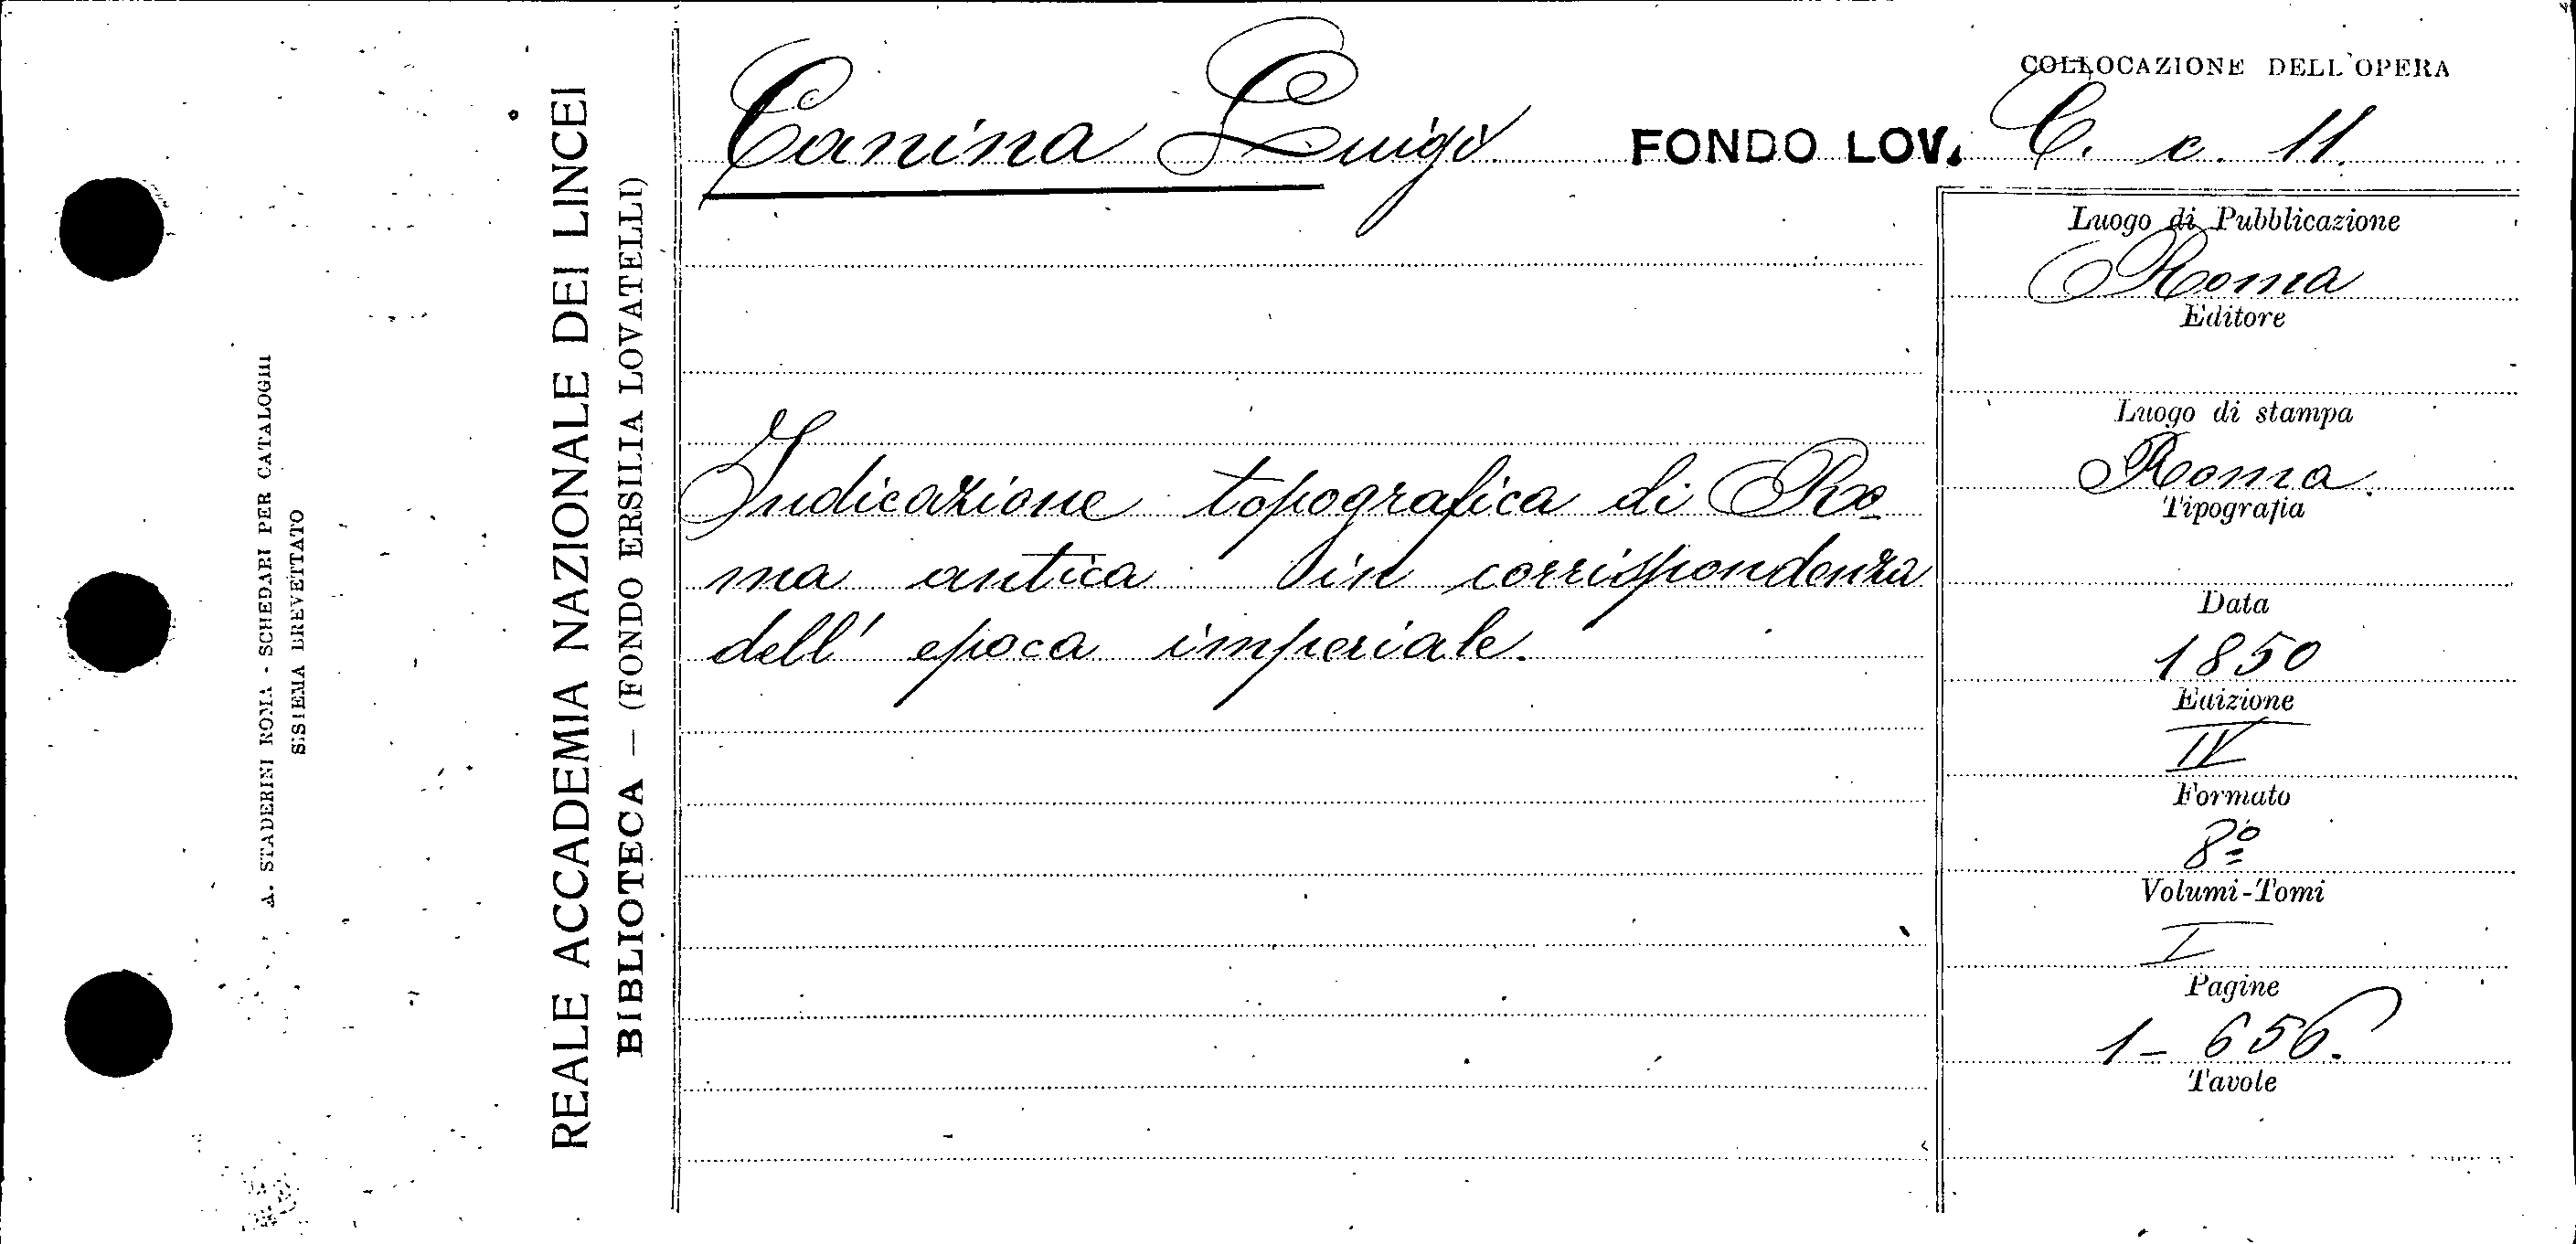 A. STADERINI ROMA - SCHEDARI PER CATALOGHI
SISTEMA BREVETTATO
REALE ACCADEMIA NAZIONALE DEI LINCEI
BIBLIOTECA — (FONDO ERSILIA LOVATELLI)
Canina Luigi
FONDO LOV.
COLLOCAZIONE DELL'OPERA
C. c. 11.
Indicazione topografica di Ro-
ma antica in corrispondenza
dell' epoca imperiale.
Luogo di Pubblicazione
Roma
Editore
Luogo di stampa
Roma.
Tipografia
Data
1850
Edizione
IV
Formato
8º
Volumi-Tomi
I
Pagine
1- 656.
Tavole